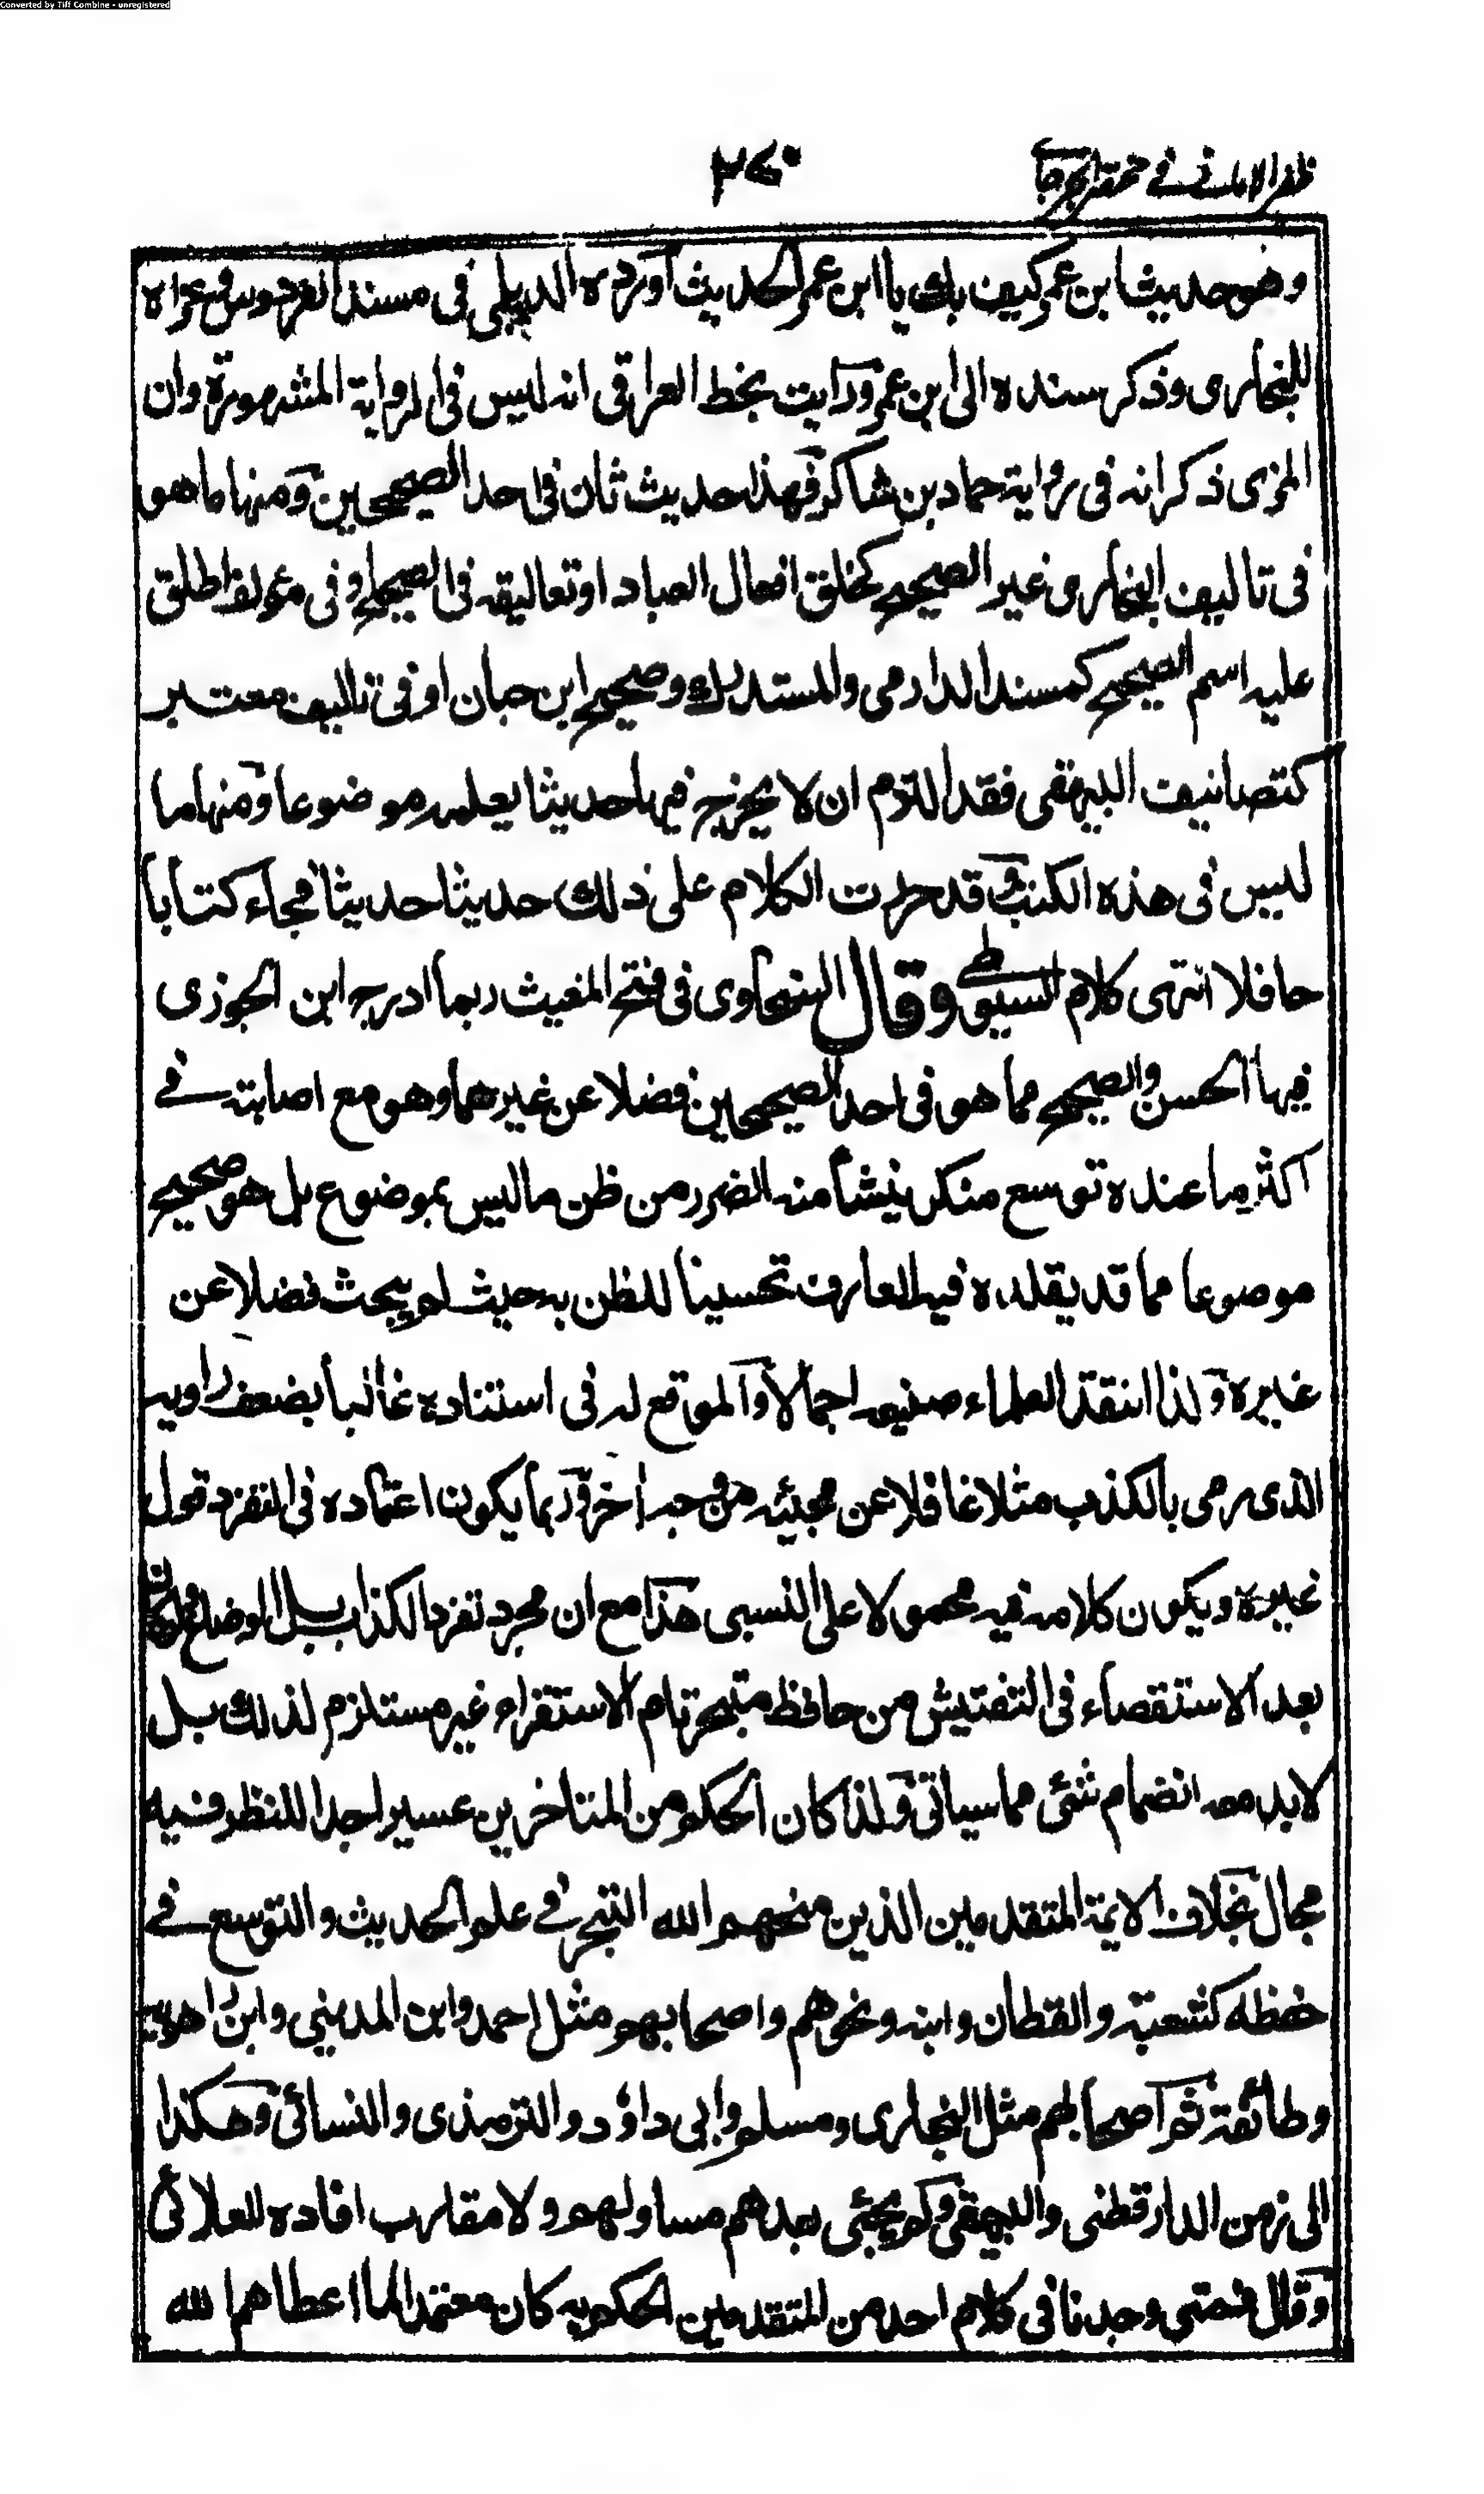 Converted by Tiff Combine - unregistered
ظفر الامانى فى مختصر الجرجانى
٢٤٠
وهو حديث ابن عمر كيف بك يا ابن عمر الحديث اورده الديلمى فى مسند الفردوس وعزاه
للبخارى وذكر سنده الى ابن عمر ورأيت بخط العراقى انه ليس فى الرواية المشهورة وان
المزى ذكر انه فى رواية حماد بن شاكر فهذا حديث ثان فى احد الصحيحين ومنها ما هو
فى تاليف البخارى غير الصحيح كخلق افعال العباد او تعاليقه فى الصحيح او فى مؤلف اطلق
عليه اسم الصحيح كمسند الدارمى والمستدرك وصحيح ابن حبان او فى تاليف معتبر
كتصانيف البيهقى فقد التزم ان لا يخرج فيها حديثا يعلمه موضوعا ومنها ما
ليس فى هذه الكتب وقد حررت الكلام على ذلك حديثا حديثا فجاء كتابا
حافلا انتهى كلام السيوطى وقال السخاوى فى فتح المغيث ربما ادرج ابن الجوزى
فيها الحسن والصحيح مما هو فى احد الصحيحين فضلا عن غيرهما وهو مع اصابته فى
اكثر ما عنده توسع منكر ينشأ منه الضرر من ظن ما ليس بموضوع بل هو صحيح
موضوعا مما قد يقلده فيه العارف تحسينا للظن به حيث لم يبحث فضلا عن
غيره ولذا انتقد العلماء صنيعه اجمالا والموقع له فى استناده غالبا بضعف راويه
الذى رمى بالكذب مثلا غافلا عن مجيئه من وجه آخر وربما يكون اعتماده فى التفرد قول
غيره ويكون كلامه فيه محمولا على النسبى هذا مع ان مجرد تفرد الكذاب بل الوضاع ولو كان
بعد الاستقصاء فى التفتيش من حافظ متبحر تام الاستقراء غير مستلزم لذلك بل
لا بد معه انضمام شئ مما سياتى ولذا كان الحكم من المتاخرين عسيرا جدا للنظر فيه
مجال بخلاف الائمة المتقدمين الذين منحهم الله التبحر فى علم الحديث والتوسع فى
حفظه كشعبة والقطان وابنه ونحوهم واصحابهم مثل احمد وابن المدينى وابن راهويه
وطائفة ثم اصحابهم مثل البخارى ومسلم وابى داؤد والترمذى والنسائى وهكذا
الى زمن الدارقطنى والبيهقى ولم يجئ بعدهم مساو لهم ولا مقارب افاده العلائى
وقال فمتى وجدنا فى كلام احد من المتقدمين الحكم به كان معتمدا لما اعطاهم الله